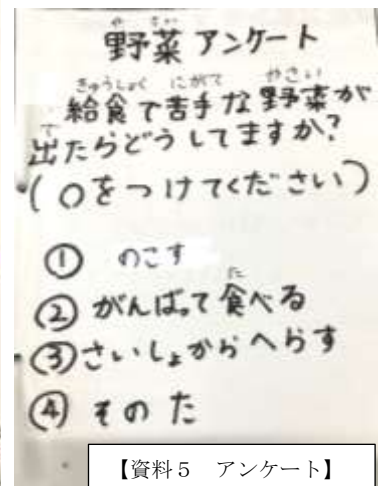 野菜アンケート
給食で苦手な野菜が
出たらどうしてますか?
(○をつけてください)
① のこす
② がんばって食べる
③ さいしょからへらす
④ そのた
【資料5 アンケート】